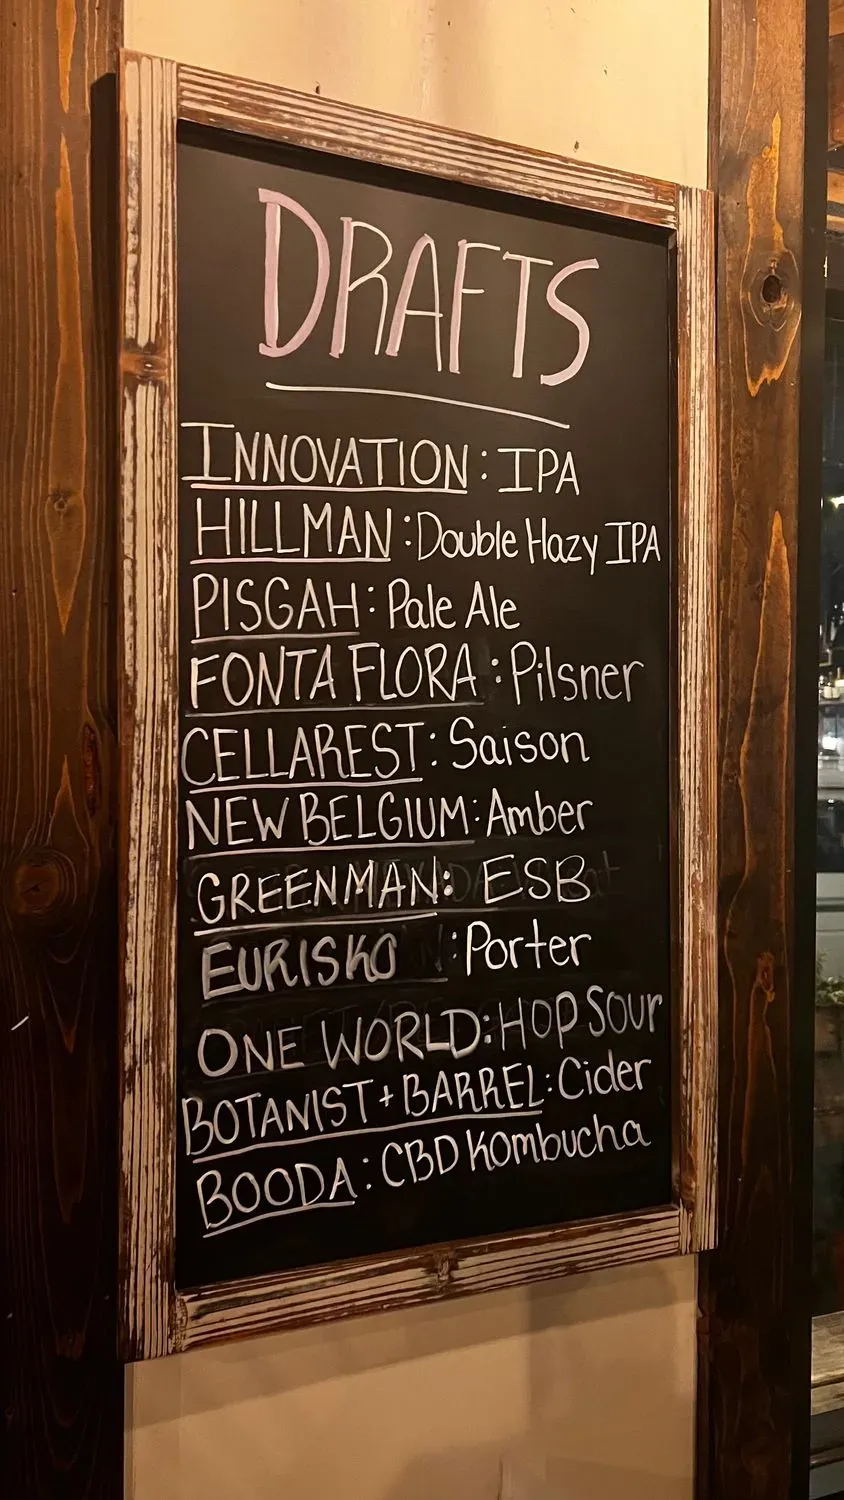 DRAFTS
INNOVATION: IPA
HILLMAN: Double Hazy IPA
PISGAH: Pale Ale
FONTA FLORA: Pilsner
CELLAREST: Saison
NEW BELGIUM: Amber
GREENMAN: ESB
EURISKO: Porter
ONE WORLD: HOP SOUR
BOTANIST + BARREL: Cider
BOODA: CBD Kombucha